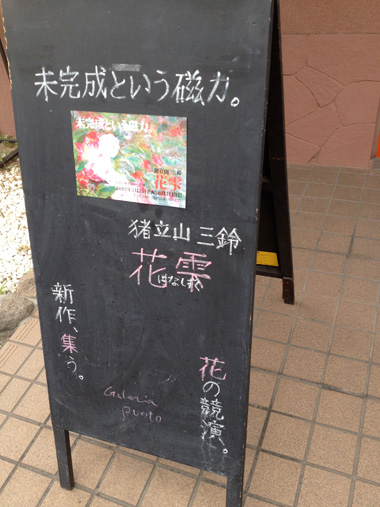 未完成という磁力。
未完成という磁力。
猪立山 三鈴
花雫
猪立山 三鈴
花雫
はなしずく
新作、集う。
花の競演。
Galeria
punto